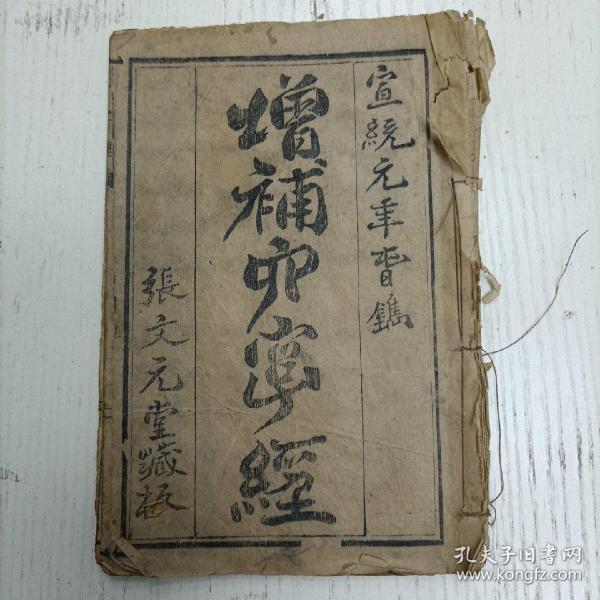 宣統元年旾鐫
增補寧經
張文元堂藏板
孔夫子旧书网
www.kongfz.com